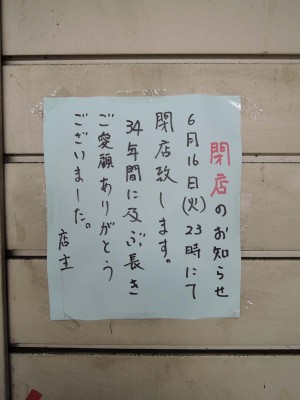 閉店のお知らせ
6月16日(火)23時にて
閉店致します。
34年間に及ぶ長き
ご愛願ありがとう
ございました。
店主